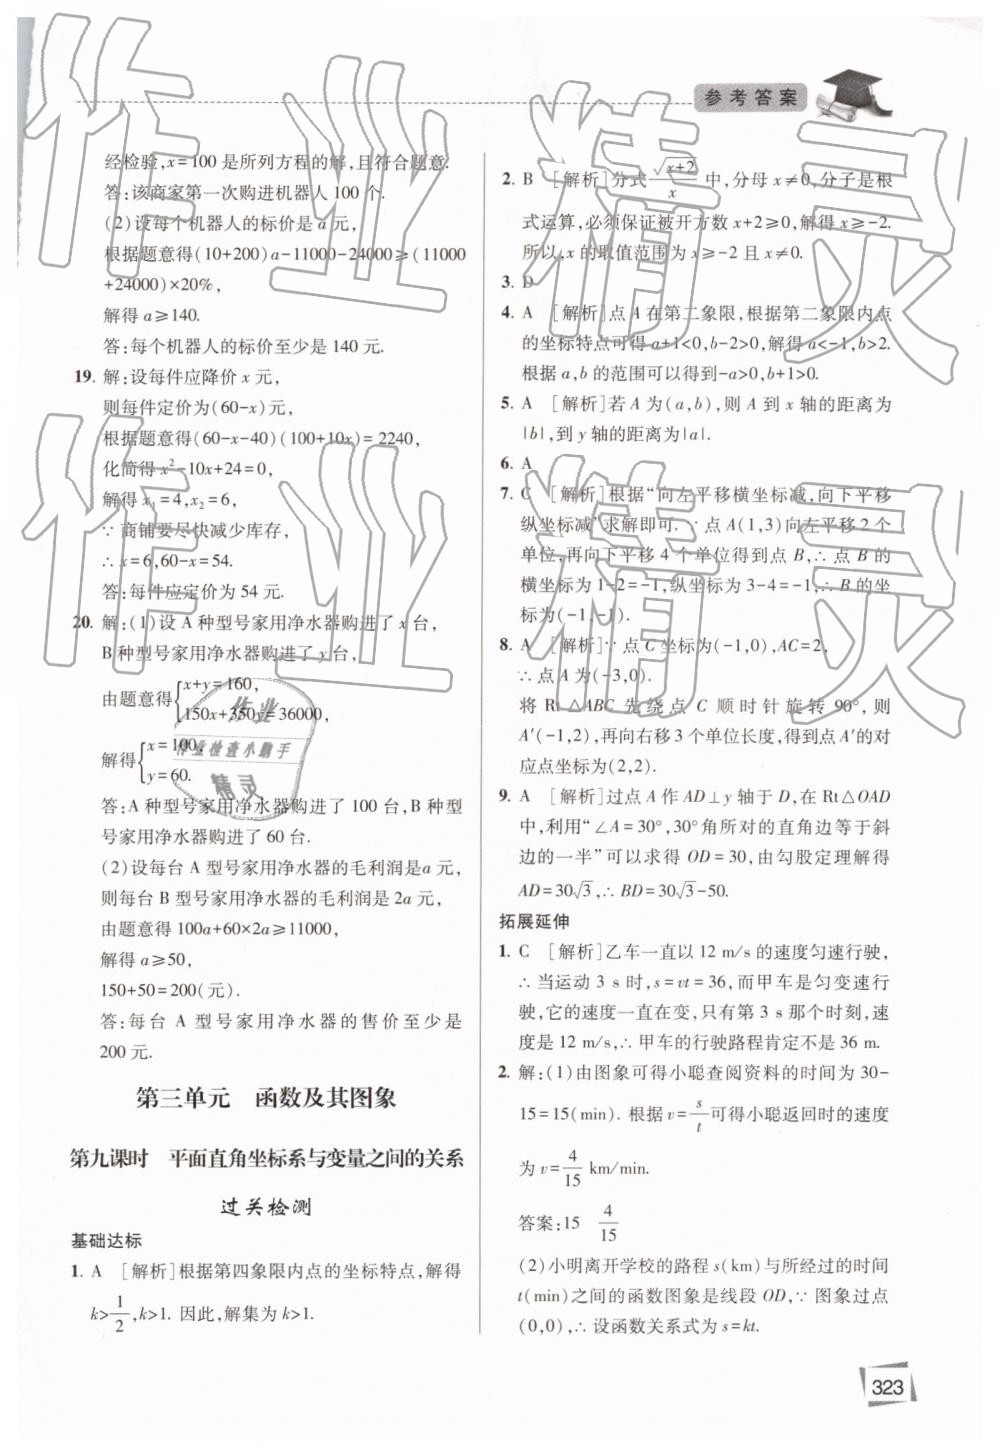 参考答案
经检验,x=100是所列方程的解,且符合题意.
答:该商家第一次购进机器人100个.
(2)设每个机器人的标价是a元,
根据题意得(10+200)a-11000-24000≥(11000
+24000)×20%,
解得a≥140.
答:每个机器人的标价至少是140元.
19. 解:设每件应降价x元,
则每件定价为(60-x)元,
根据题意得(60-x-40)(100+10x)=2240,
化简得x²-10x+24=0,
解得x₁=4,x₂=6,
∵商铺要尽快减少库存,
∴x=6,60-x=54.
答:每件应定价为54元.
20. 解:(1)设A种型号家用净水器购进了x台,
B种型号家用净水器购进了y台,
由题意得{x+y=160,
150x+350y=36000,
解得{x=100,
y=60.
答:A种型号家用净水器购进了100台,B种型
号家用净水器购进了60台.
(2)设每台A型号家用净水器的毛利润是a元,
则每台B型号家用净水器的毛利润是2a元,
由题意得100a+60×2a≥11000,
解得a≥50,
150+50=200(元).
答:每台A型号家用净水器的售价至少是
200元.
第三单元 函数及其图象
第九课时 平面直角坐标系与变量之间的关系
过关检测
基础达标
1. A [解析]根据第四象限内点的坐标特点,解得
k>1/2,k>1. 因此,解集为k>1.
2. B [解析]分式√(x+2)/x中,分母x≠0,分子是根
式运算,必须保证被开方数x+2≥0,解得x≥-2.
所以,x的取值范围为x≥-2且x≠0.
3. D
4. A [解析]点A在第二象限,根据第二象限内点
的坐标特点可得a+1<0,b-2>0,解得a<-1,b>2.
根据a,b的范围可以得到-a>0,b+1>0.
5. A [解析]若A为(a,b),则A到x轴的距离为
|b|,到y轴的距离为|a|.
6. A
7. C [解析]根据“向左平移横坐标减,向下平移
纵坐标减”求解即可.∵点A(1,3)向左平移2个
单位,再向下平移4个单位得到点B,∴点B的
横坐标为1-2=-1,纵坐标为3-4=-1,∴B的坐
标为(-1,-1).
8. A [解析]∵点C坐标为(-1,0),AC=2,
∴点A为(-3,0).
将Rt△ABC先绕点C顺时针旋转90°,则
A′(-1,2),再向右移3个单位长度,得到点A′的对
应点坐标为(2,2).
9. A [解析]过点A作AD⊥y轴于D,在Rt△OAD
中,利用“∠A=30°,30°角所对的直角边等于斜
边的一半”可以求得OD=30,由勾股定理解得
AD=30√3,∴BD=30√3-50.
拓展延伸
1. C [解析]乙车一直以12 m/s的速度匀速行驶,
∴当运动3 s时,s=vt=36,而甲车是匀变速行
驶,它的速度一直在变,只有第3 s那个时刻,速
度是12 m/s,∴甲车的行驶路程肯定不是36 m.
2. 解:(1)由图象可得小聪查阅资料的时间为30-
15=15(min). 根据v=s/t可得小聪返回时的速度
为v=4/15 km/min.
答案:15 4/15
(2)小明离开学校的路程s(km)与所经过的时间
t(min)之间的函数图象是线段OD,∵图象过点
(0,0),∴设函数关系式为s=kt.
323
作业精灵
作业精灵
作业
作业检查小助手
精灵